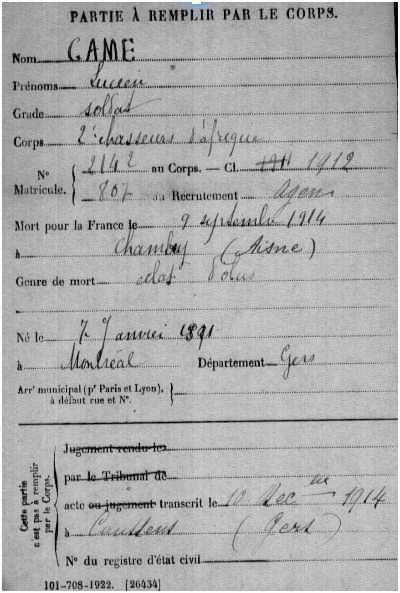 PARTIE À REMPLIR PAR LE CORPS.
Nom CAME
Prénoms Lucien
Grade soldat
Corps 2e chasseurs d'afrique
N° Matricule. { 2142 au Corps. — Cl. 1911 1912
807 au Recrutement Agen
Mort pour la France le 9 septembre 1914
à Chambry (Aisne)
Genre de mort éclat d'obus
Né le 7 Janvier 1891
à Montréal Département Gers
Arrt municipal (pr Paris et Lyon), à défaut rue et N°. {
Cette partie n'est pas à remplir par le Corps.
Jugement rendu le
par le Tribunal de
acte ou jugement transcrit le 10 Decbre 1914
à Caussens (Gers)
N° du registre d'état civil
101-708-1922. [26434]